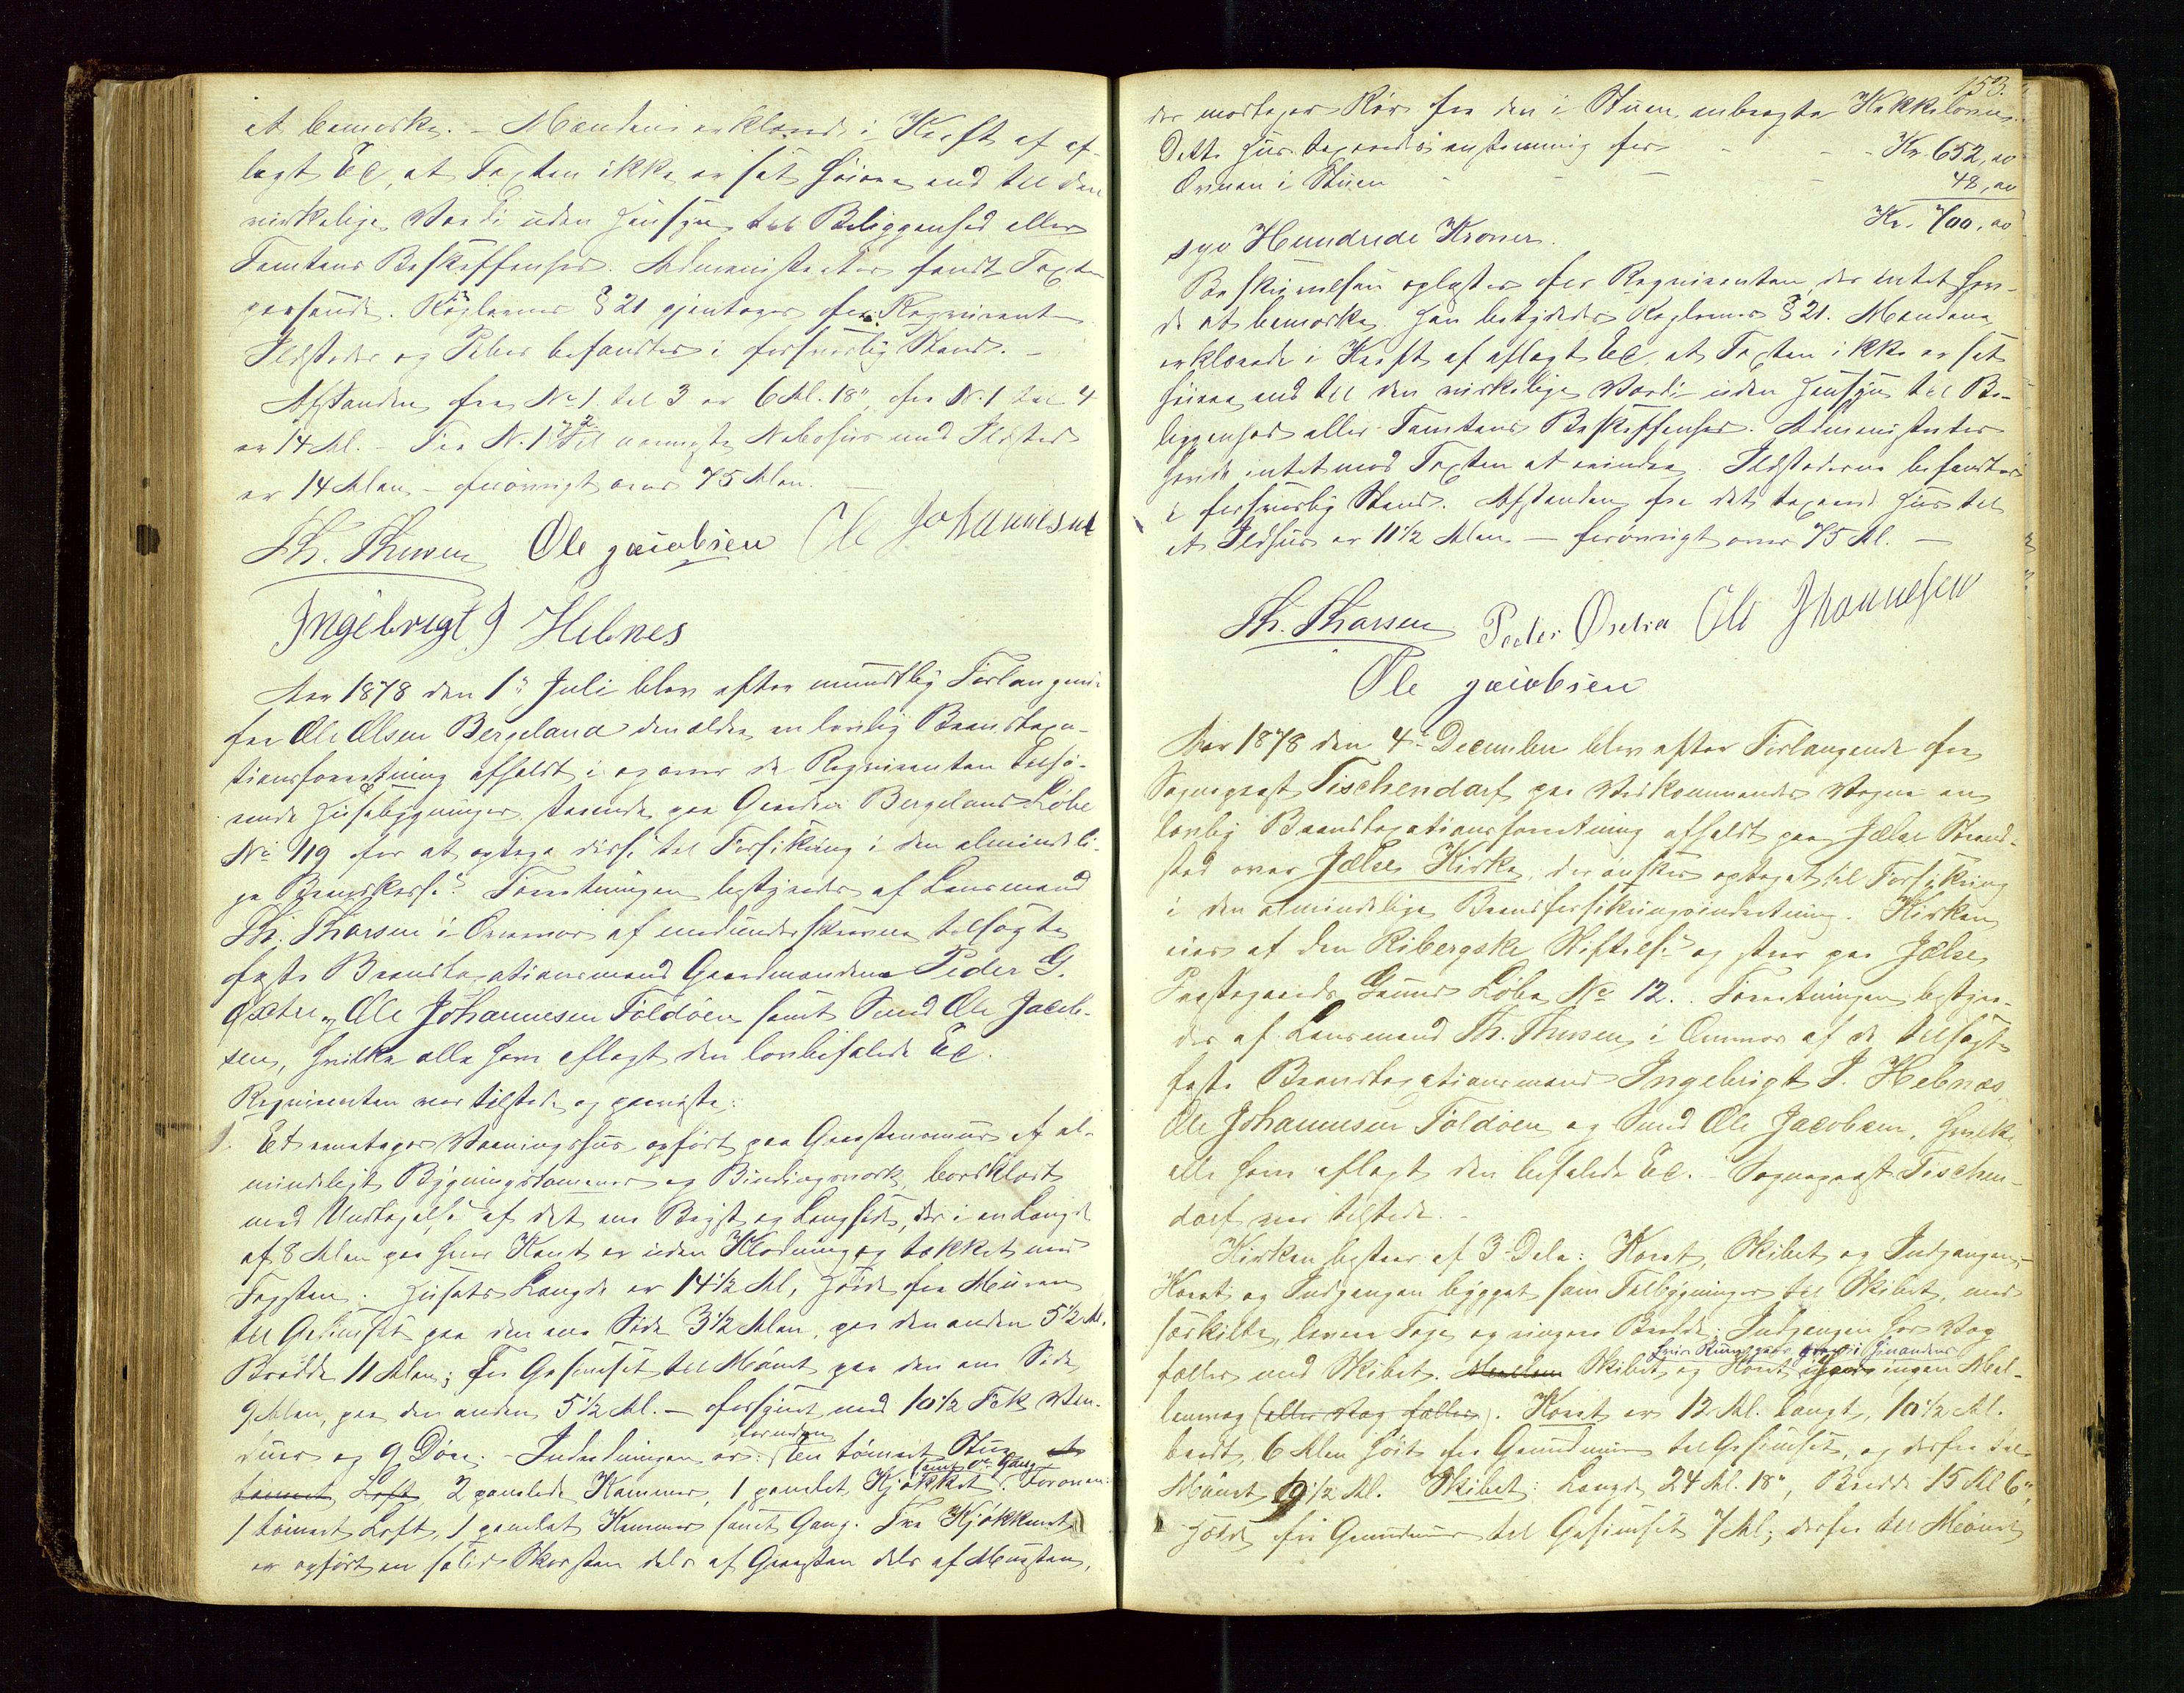 at bemærke. – Mændene erklærede i Kraft af af-
lagt Ed, at Taxten ikke er sat høiere end til den
virkelige Værdi uden Hensyn til Beliggenhed eller
Tomtens Beskaffenhed. Administrator fandt Taxten
passende. Reglernes § 21 gjentoges for Requirenten
Ildsteder og Piber befandtes i forsvarlig Stand. –
Afstanden fra No 1 til 3 er 6 Al. 18", fra N. 1 til 4
er 14 Al. – Fra N. 1 til nærmeste Nabohus med Ildsted
er 14 Alen – forøvrigt over 75 Alen. –
Th. Thorsen Ole Jacobsen Ole Johannesen
Ingebrigt J Hebnes
Aar 1878 den 1ste Juli blev efter mundtlig Forlangende
fra Ole Olsen Bergeland den ældre en lovlig Brandtaxa-
tionsforretning afholdt i og over de Requirenten tilhø-
rende Husebygninger staaende paa Gaarden Bergeland Løbe
No 119 for at optage disse til Forsikring i den almindeli-
ge Brandkasse. Forretningen bestyredes af Lensmand
Th. Thorsen i Overvær af medunderskrevne tilsagte
faste Brandtaxationsmænd Gaardmændene Peder G.
Østre og Ole Johannesen Foldøen samt Smed Ole Jacob-
sen, hvilke alle have aflagt den lovbefalede Ed.
Requirenten var tilstede og paaviste:
1. Et eenetages Vaaningshus opført paa Graastensmur af al-
mindeligt Bygningstømmer og Bindingsværk, bordklædt
med Undtagelse af det ene Bryst og Langside, der i en Længde
af 8 Alen paa hver Kant er uden Klædning og tækket med
Tagsten. Husets Længde er 14 1/2 Al, Høide fra Muren
til Gesimset paa den ene Side 3 1/2 Alen, paa den anden 5 1/2 Al.
Bredde 11 Alen; fra Gesimset til Mønet paa den ene Side
9 Alen, paa den anden 5 1/2 Al. – forsynet med 10 1/2 Fak Vin-
duer og 9 Døre. – Indredningen er: forneden
En tømret Stue et
tømret Loft, 2 panelede Kammer, 1 panelet Kjøkken samt en Gang. Foroven:
1 tømret Loft, 1 panelet Kammer samt Gang. Fra Kjøkkenet
er opført en solid Skorsten dels af Graasten dels af Mursten,
153.
der modtager Rør fra den i Stuen anbragte Kakkelovn.
Dette Hus taxeredes enstemmig for - - - Kr. 652,00
Ovnen i Stuen - - - - 48,00
Kr. 700,00
syv Hundrede Kroner.
Beskrivelsen oplæstes for Requirenten, der intet hav-
de at bemærke. Han betydedes Reglernes § 21. Mændene
erklærede i Kraft af aflagt Ed, at Taxten ikke er sat
høiere end til den virkelige Værdi uden Hensyn til Be-
liggenhed eller Tomtens Beskaffenhed. Administrator
havde intet mod Taxten at erindre. Ildstederne befandtes
i forsvarlig Stand. Afstanden fra det taxerede Hus til
et Ildhus er 11 1/2 Alen – forøvrigt over 75 Al. –
Th. Thorsen Peder Østrå Ole Johannesen
Ole Jacobsen
Aar 1878 den 4de December blev efter Forlangende fra
Sogneprest Tischendorf paa Vedkommendes Vegne en
lovlig Brandtaxationsforretning afholdt paa Jælse Strand-
sted over Jælse Kirke, der ønskes optaget til Forsikring
i den almindelige Brandforsikringsindretning. Kirken
eies af den Ribergske Stiftelse og staar paa Jælse
Præstegaards Grund Løbe No 12. Forretningen bestyre-
des af Lensmand Th. Thorsen i Overvær af de tilsagte
faste Brandtaxationsmænd Ingebrigt J. Hebnæs
Ole Johannesen Foldøen og Smed Ole Jacobsen, hvilke
alle have aflagt den befalede Ed. – Sogneprest Tischen-
dorf var tilstede. –
Kirken bestaar af 3 Dele: Koret, Skibet og Indgangen.
Koret og Indgangen bygget som Tilbygninger til Skibet, med
særskilte, lavere Tage og ringere Bredde; Indgangen har Væg
fælles med Skibet. Mellem Skibet og Koret hvis Rum gaar i hinanden ingen Mel-
lemvæg (eller Væg fælles). Koret er 12 Al. langt, 10 1/2 Al.
bredt, 6 Alen høit fra Grundmur til Gesimset, og derfra til
Mønet 9 1/2 Al. Skibet: Længde 24 Al. 18", Bredde 15 Al 6",
Høide fra Grundmur til Gesimset 7 Al; derfra til Mønet